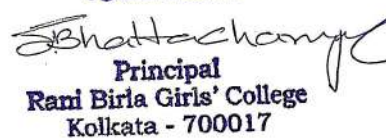 SBhattacharya
Principal
Rani Birla Girls' College
Kolkata - 700017